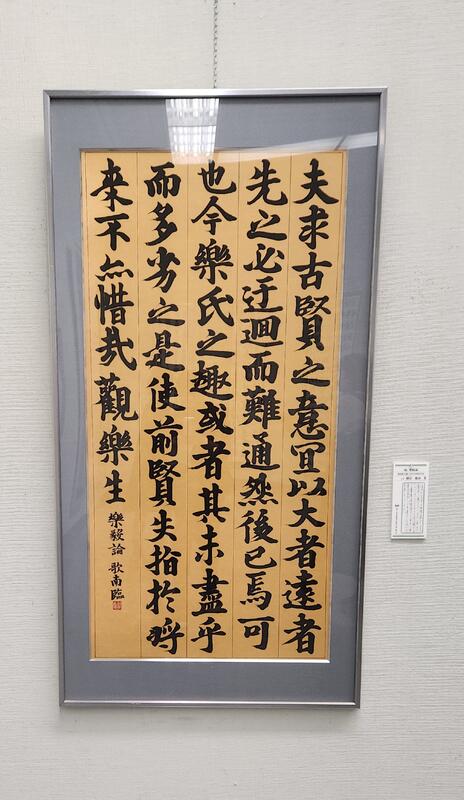 夫求古賢之意宜以大者遠者
先之必迂迴而難通然後已焉可
也今樂氏之趣或者其未盡乎
而多劣之是使前賢失指於将
来不亦惜哉觀樂生
樂毅論 歌南臨